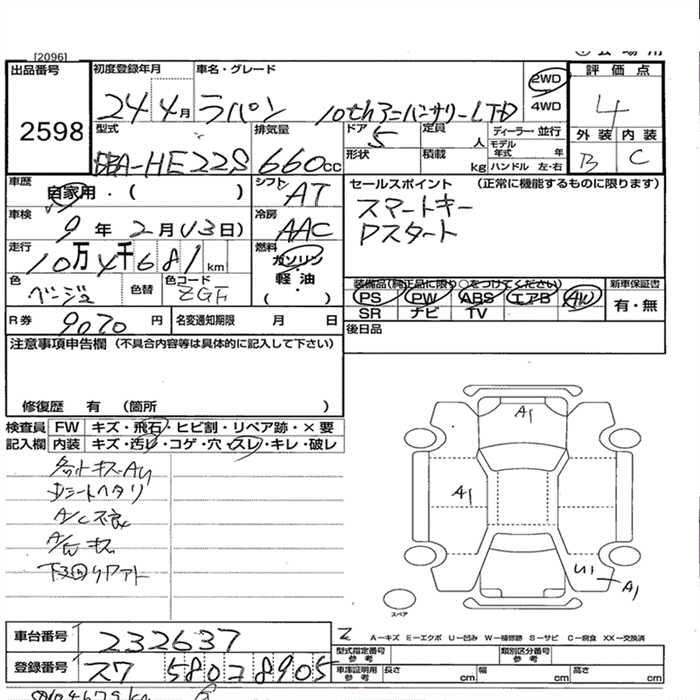 [2096]
出品番号
2598
初度登録年月
24年 4月
車名・グレード
ラパン 10thアニバーサリーLTD
2WD
4WD
評価点
4
外装 内装
B C
型式
DBA-HE22S
排気量
660cc
ドア
5
定員
人
形状
積載
kg
ディーラー・並行
モデル年式 年
ハンドル 左・右
車歴
自家用・( )
シフト
AT
車検
9年 2月(13日)
冷房
AAC
走行
10万4千681km
燃料
ガソリン・軽油
( )
色
ベージュ
色替
色コード
ZGF
セールスポイント (正常に機能するものに限ります)
スマートキー
Pスタート
装備品(純正品に限り○をつけてください)
PS PW ABS エアB AW
SR ナビ TV
新車保証書
有・無
後日品
R券
9070円
名変通知期限 月 日
注意事項申告欄 (不具合内容等は具体的に記入して下さい)
修復歴 有 (箇所 )
検査員
記入欄
FW キズ・飛石・ヒビ割・リペア跡・×要
内装 キズ・汚レ・コゲ・穴・スレ・キレ・破レ
Dシートヘタリ
A/C不良
A/W キズ
A1
A1
U1
A1
スペア
車台番号
232637
登録番号
580 8905
A－キズ E－エクボ U－凹み W－補修跡 S－サビ C－腐食 XX－交換済
型式指定番号
参考
類別区分番号
参考
車庫証明用
参考
長さ cm
幅 cm
高さ cm